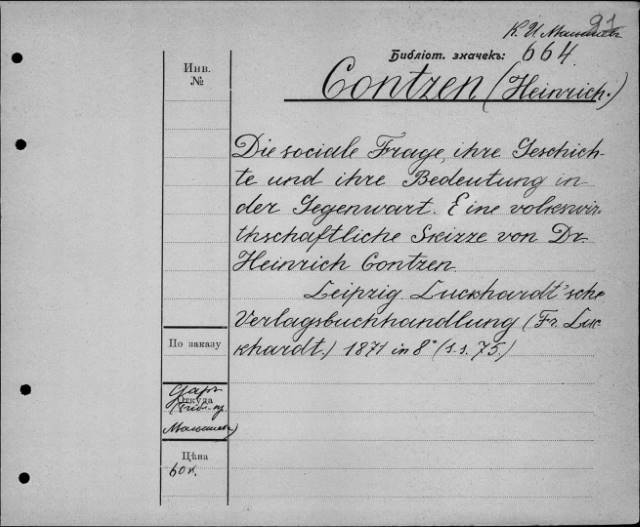 21
К. И. Малышевъ
Библіот. значекъ: 664.
Инв.
№
Contzen (Heinrich.)
Die sociale Frage, ihre Geschich-
te und ihre Bedeutung in
der Gegenwart. Eine volkswir
thschaftliche Skizze von Dr.
Heinrich Contzen.
Leipzig. Luckhardt'sche
Verlagsbuchhandlung (Fr. Luc
khardt.) 1871 in 8° (s.s. 75.)
По заказу
Даръ
Откуда
Малышева)
Цѣна
60 к.